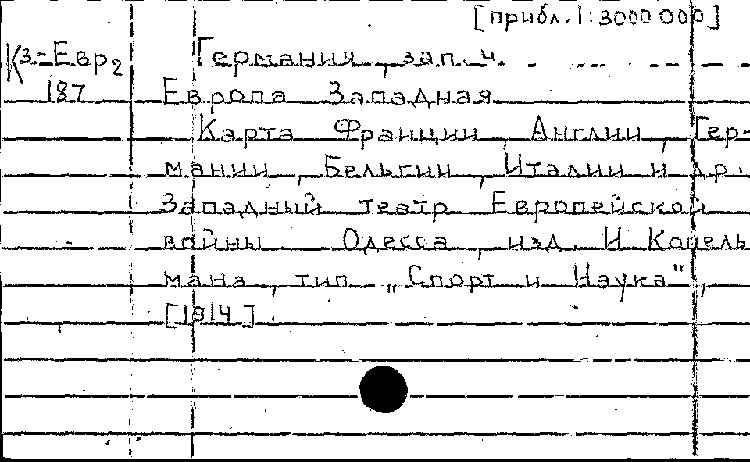 [прибл. 1:3000000]
К3-Евр2 Германия, зап. ч.
187 Европа Западная
Карта Франции, Англии, Гер-
мании, Бельгии, Италии и др.
Западный театр Европейской
войны. Одесса, изд. И Копель
мана, тип. „Спорт и Наука",
[1914]